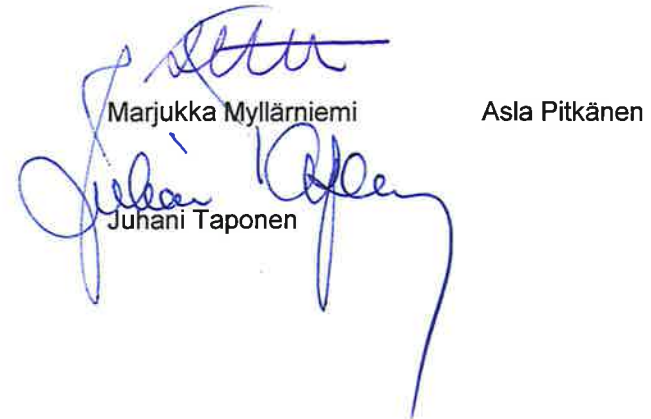 Marjukka Myllärniemi Asla Pitkänen
Juhani Taponen